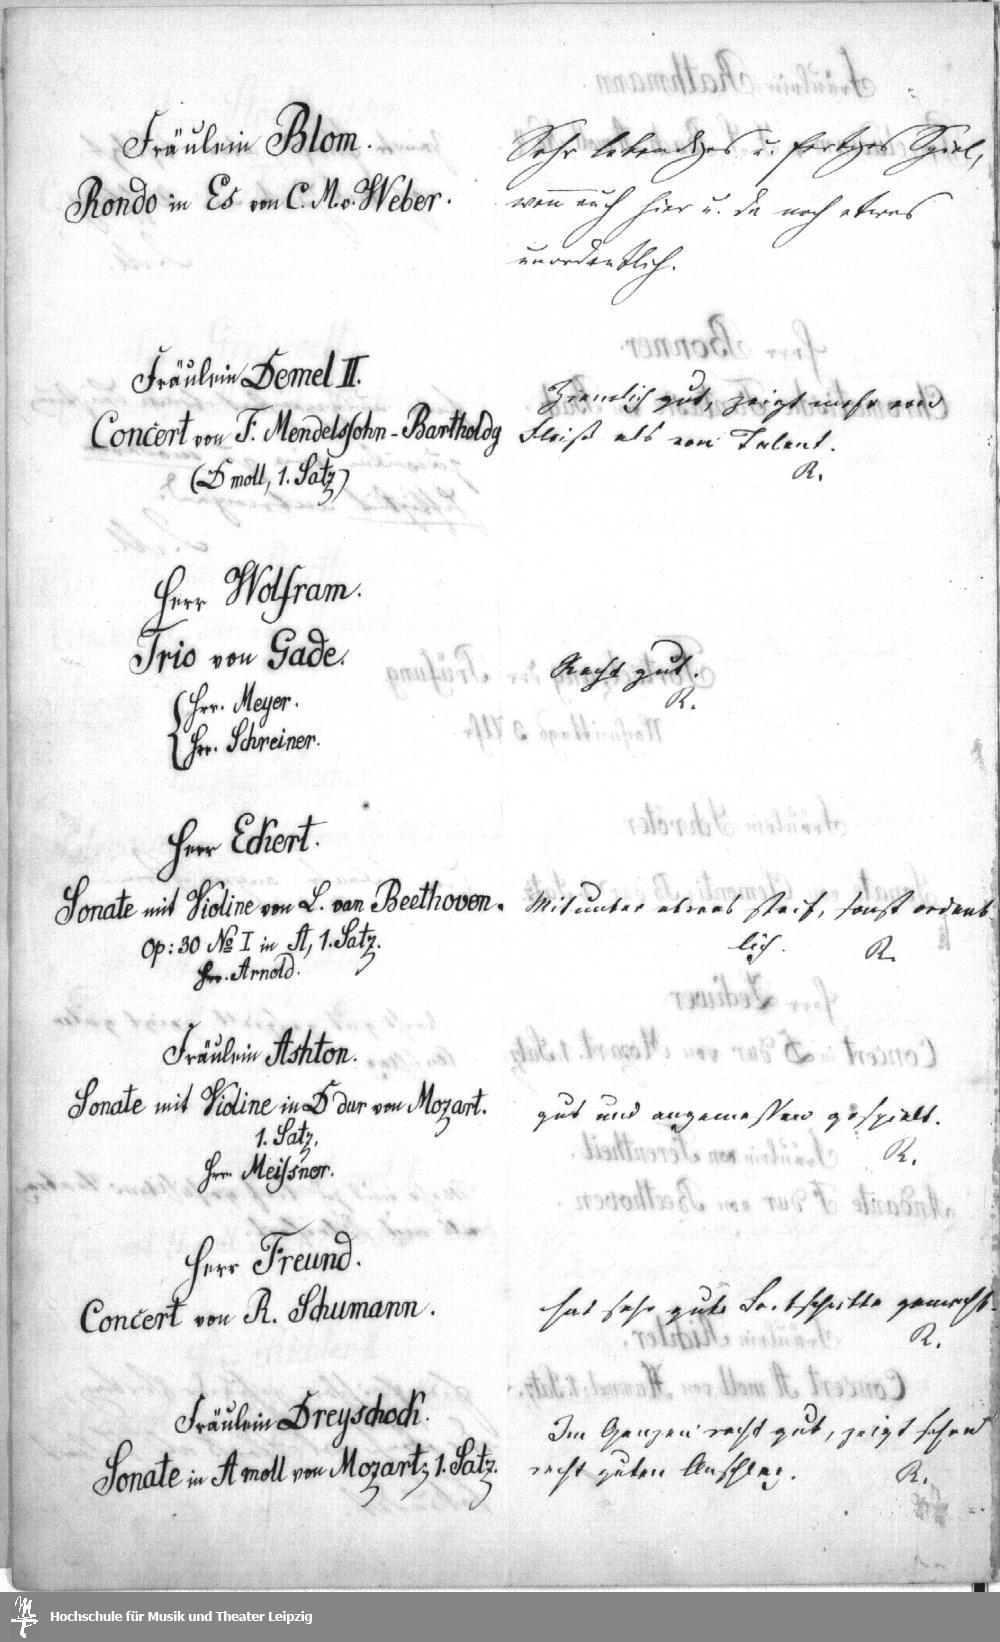 Fräulein Blom.
Rondo in Es von C. M. v. Weber.
Sehr lebendiges u. fertiges Spiel,
wenn auch hier u. da noch etwas
unordentlich.
Fräulein Demel II.
Concert von F. Mendelssohn-Bartholdy
(D moll, 1. Satz)
Ziemlich gut, zeigt mehr von
Fleiß als von Talent.
R.
Herr Wolfram.
Trio von Gade.
Hrr. Meyer.
Hrr. Schreiner.
Recht gut.
R.
Herr Eckert.
Sonate mit Violine von L. van Beethoven.
Op: 30 No I in A, 1. Satz.
Hrr. Arnold.
Mitunter etwas steif, sonst ordent-
lich.
R.
Fräulein Ashton.
Sonate mit Violine in D dur von Mozart.
1. Satz.
Hrr. Meissner.
gut und angemessen gespielt.
R.
Herr Freund.
Concert von R. Schumann.
hat sehr gute Fortschritte gemacht.
R.
Fräulein Dreyschock.
Sonate in A moll von Mozart, 1. Satz.
Im Ganzen recht gut, zeigt schon
recht guten Anschlag.
R.
Hochschule für Musik und Theater Leipzig